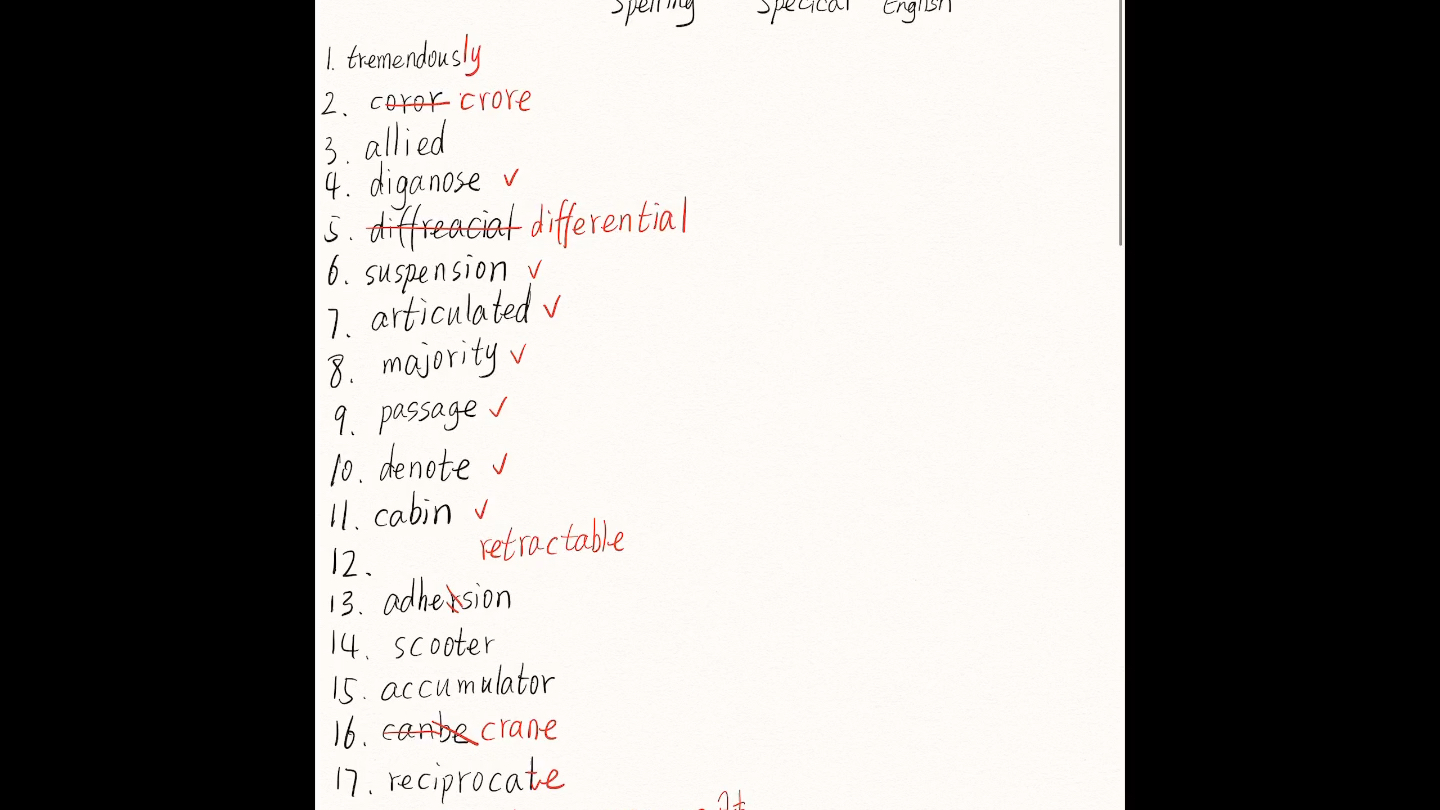 Spelling Specical English
1. tremendously
2. coror crore
3. allied
4. diganose ✓
5. diffreacial differential
6. suspension ✓
7. articulated ✓
8. majority ✓
9. passage ✓
10. denote ✓
11. cabin ✓
retractable
12.
13. adhersion
14. scooter
15. accumulator
16. canbe crane
17. reciprocate